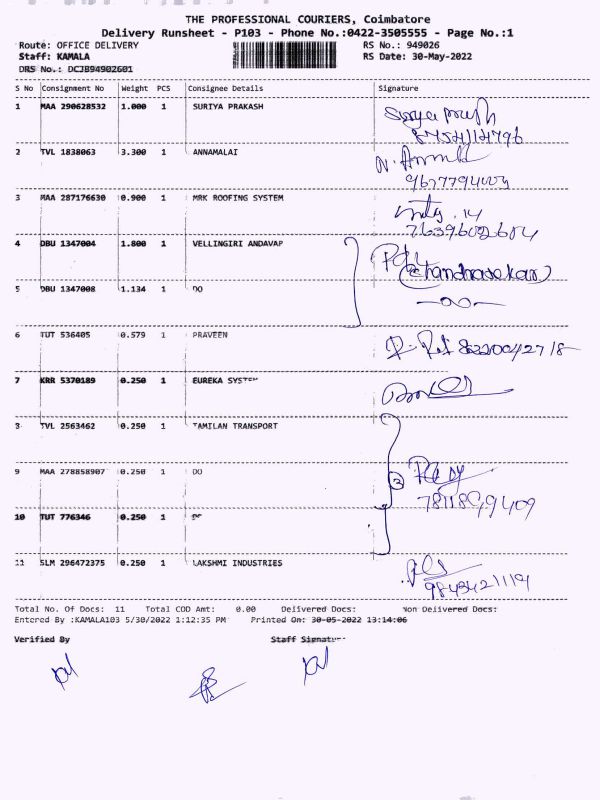 THE PROFESSIONAL COURIERS, Coimbatore
Delivery Runsheet - P103 - Phone No.:0422-3505555 - Page No.:1
Route: OFFICE DELIVERY RS No.: 949026
Staff: KAMALA RS Date: 30-May-2022
DRS No.: DCJB94902601
S No Consignment No Weight PCS Consignee Details Signature
1 MAA 290628532 1.000 1 SURIYA PRAKASH
2 TVL 1838063 3.300 1 ANNAMALAI
3 MAA 287176630 0.900 1 MRK ROOFING SYSTEM
4 DBU 1347004 1.800 1 VELLINGIRI ANDAVAR
Chandrasekar
5 DBU 1347008 1.134 1 DO
6 TUT 536405 0.579 1 PRAVEEN
7 KRR 5370189 0.250 1 EUREKA SYSTEM
8 TVL 2563462 0.250 1 TAMILAN TRANSPORT
9 MAA 278858907 0.250 1 DO
3
10 TUT 776346 0.250 1 DO
11 SLM 296472375 0.250 1 LAKSHMI INDUSTRIES
9843421119
Total No. Of Docs: 11 Total COD Amt: 0.00 Delivered Docs: Non Delivered Docs:
Entered By :KAMALA103 5/30/2022 1:12:35 PM Printed On: 30-05-2022 13:14:06
Verified By Staff Signature